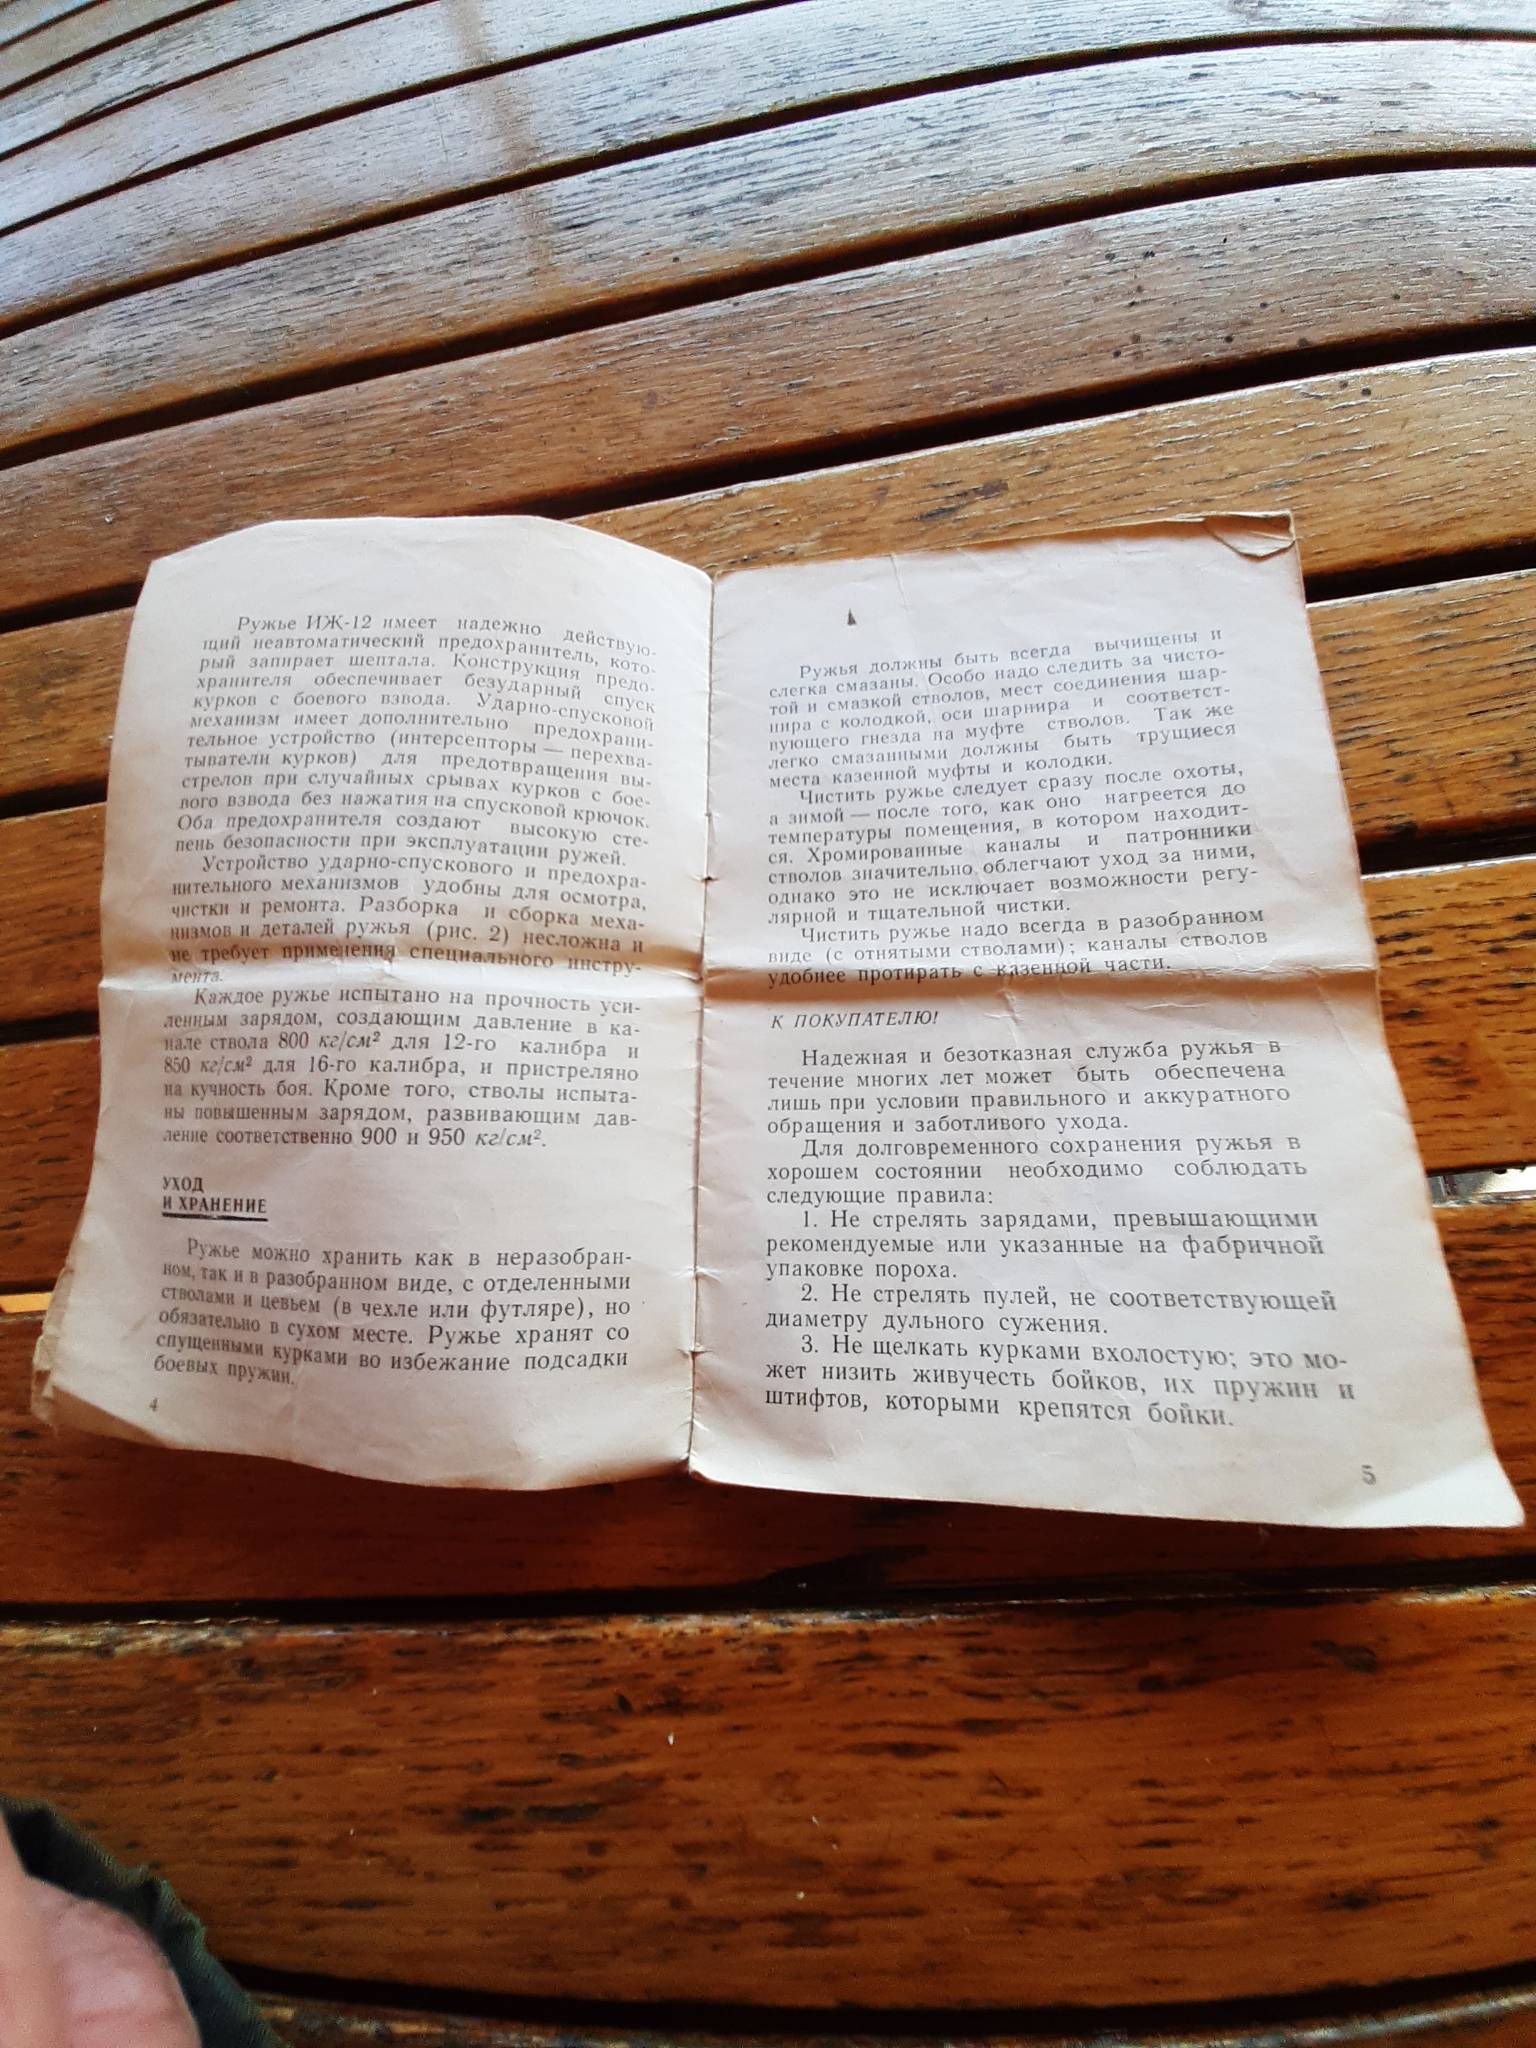 Ружье ИЖ-12 имеет надежно действую-
щий неавтоматический предохранитель, кото-
рый запирает шептала. Конструкция предо-
хранителя обеспечивает безударный спуск
курков с боевого взвода. Ударно-спусковой
механизм имеет дополнительно предохрани-
тельное устройство (интерсепторы — перехва-
тыватели курков) для предотвращения вы-
стрелов при случайных срывах курков с бое-
вого взвода без нажатия на спусковой крючок.
Оба предохранителя создают высокую сте-
пень безопасности при эксплуатации ружей.
Устройство ударно-спускового и предохра-
нительного механизмов удобны для осмотра,
чистки и ремонта. Разборка и сборка меха-
низмов и деталей ружья (рис. 2) несложна и
не требует применения специального инстру-
мента.
Каждое ружье испытано на прочность уси-
ленным зарядом, создающим давление в ка-
нале ствола 800 кг/см² для 12-го калибра и
850 кг/см² для 16-го калибра, и пристреляно
на кучность боя. Кроме того, стволы испыта-
ны повышенным зарядом, развивающим дав-
ление соответственно 900 и 950 кг/см².
УХОД
И ХРАНЕНИЕ
Ружье можно хранить как в неразобран-
ном, так и в разобранном виде, с отделенными
стволами и цевьем (в чехле или футляре), но
обязательно в сухом месте. Ружье хранят со
спущенными курками во избежание подсадки
боевых пружин.
4
Ружья должны быть всегда вычищены и
слегка смазаны. Особо надо следить за чисто-
той и смазкой стволов, мест соединения шар-
нира с колодкой, оси шарнира и соответст-
вующего гнезда на муфте стволов. Так же
легко смазанными должны быть трущиеся
места казенной муфты и колодки.
Чистить ружье следует сразу после охоты,
а зимой — после того, как оно нагреется до
температуры помещения, в котором находит-
ся. Хромированные каналы и патронники
стволов значительно облегчают уход за ними,
однако это не исключает возможности регу-
лярной и тщательной чистки.
Чистить ружье надо всегда в разобранном
виде (с отнятыми стволами); каналы стволов
удобнее протирать с казенной части.
К ПОКУПАТЕЛЮ!
Надежная и безотказная служба ружья в
течение многих лет может быть обеспечена
лишь при условии правильного и аккуратного
обращения и заботливого ухода.
Для долговременного сохранения ружья в
хорошем состоянии необходимо соблюдать
следующие правила:
1. Не стрелять зарядами, превышающими
рекомендуемые или указанные на фабричной
упаковке пороха.
2. Не стрелять пулей, не соответствующей
диаметру дульного сужения.
3. Не щелкать курками вхолостую; это мо-
жет низить живучесть бойков, их пружин и
штифтов, которыми крепятся бойки.
5